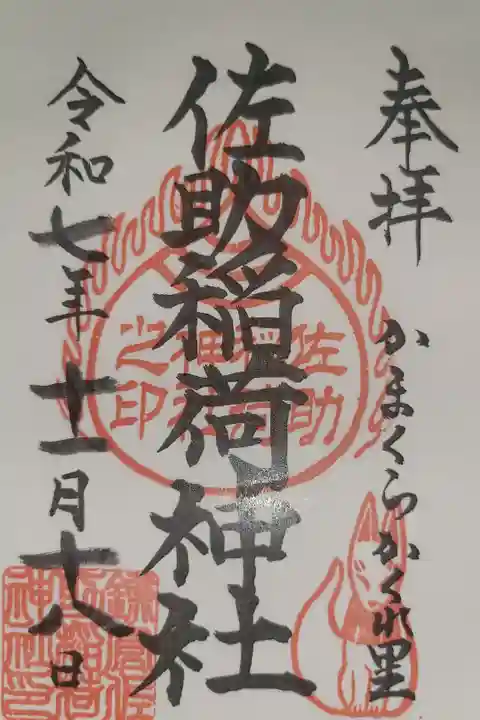 奉拝
かまくらかくれ里
佐助稲荷神社
佐助稲荷神社之印
令和七年十一月十八日
鎌倉佐助稲荷神社印